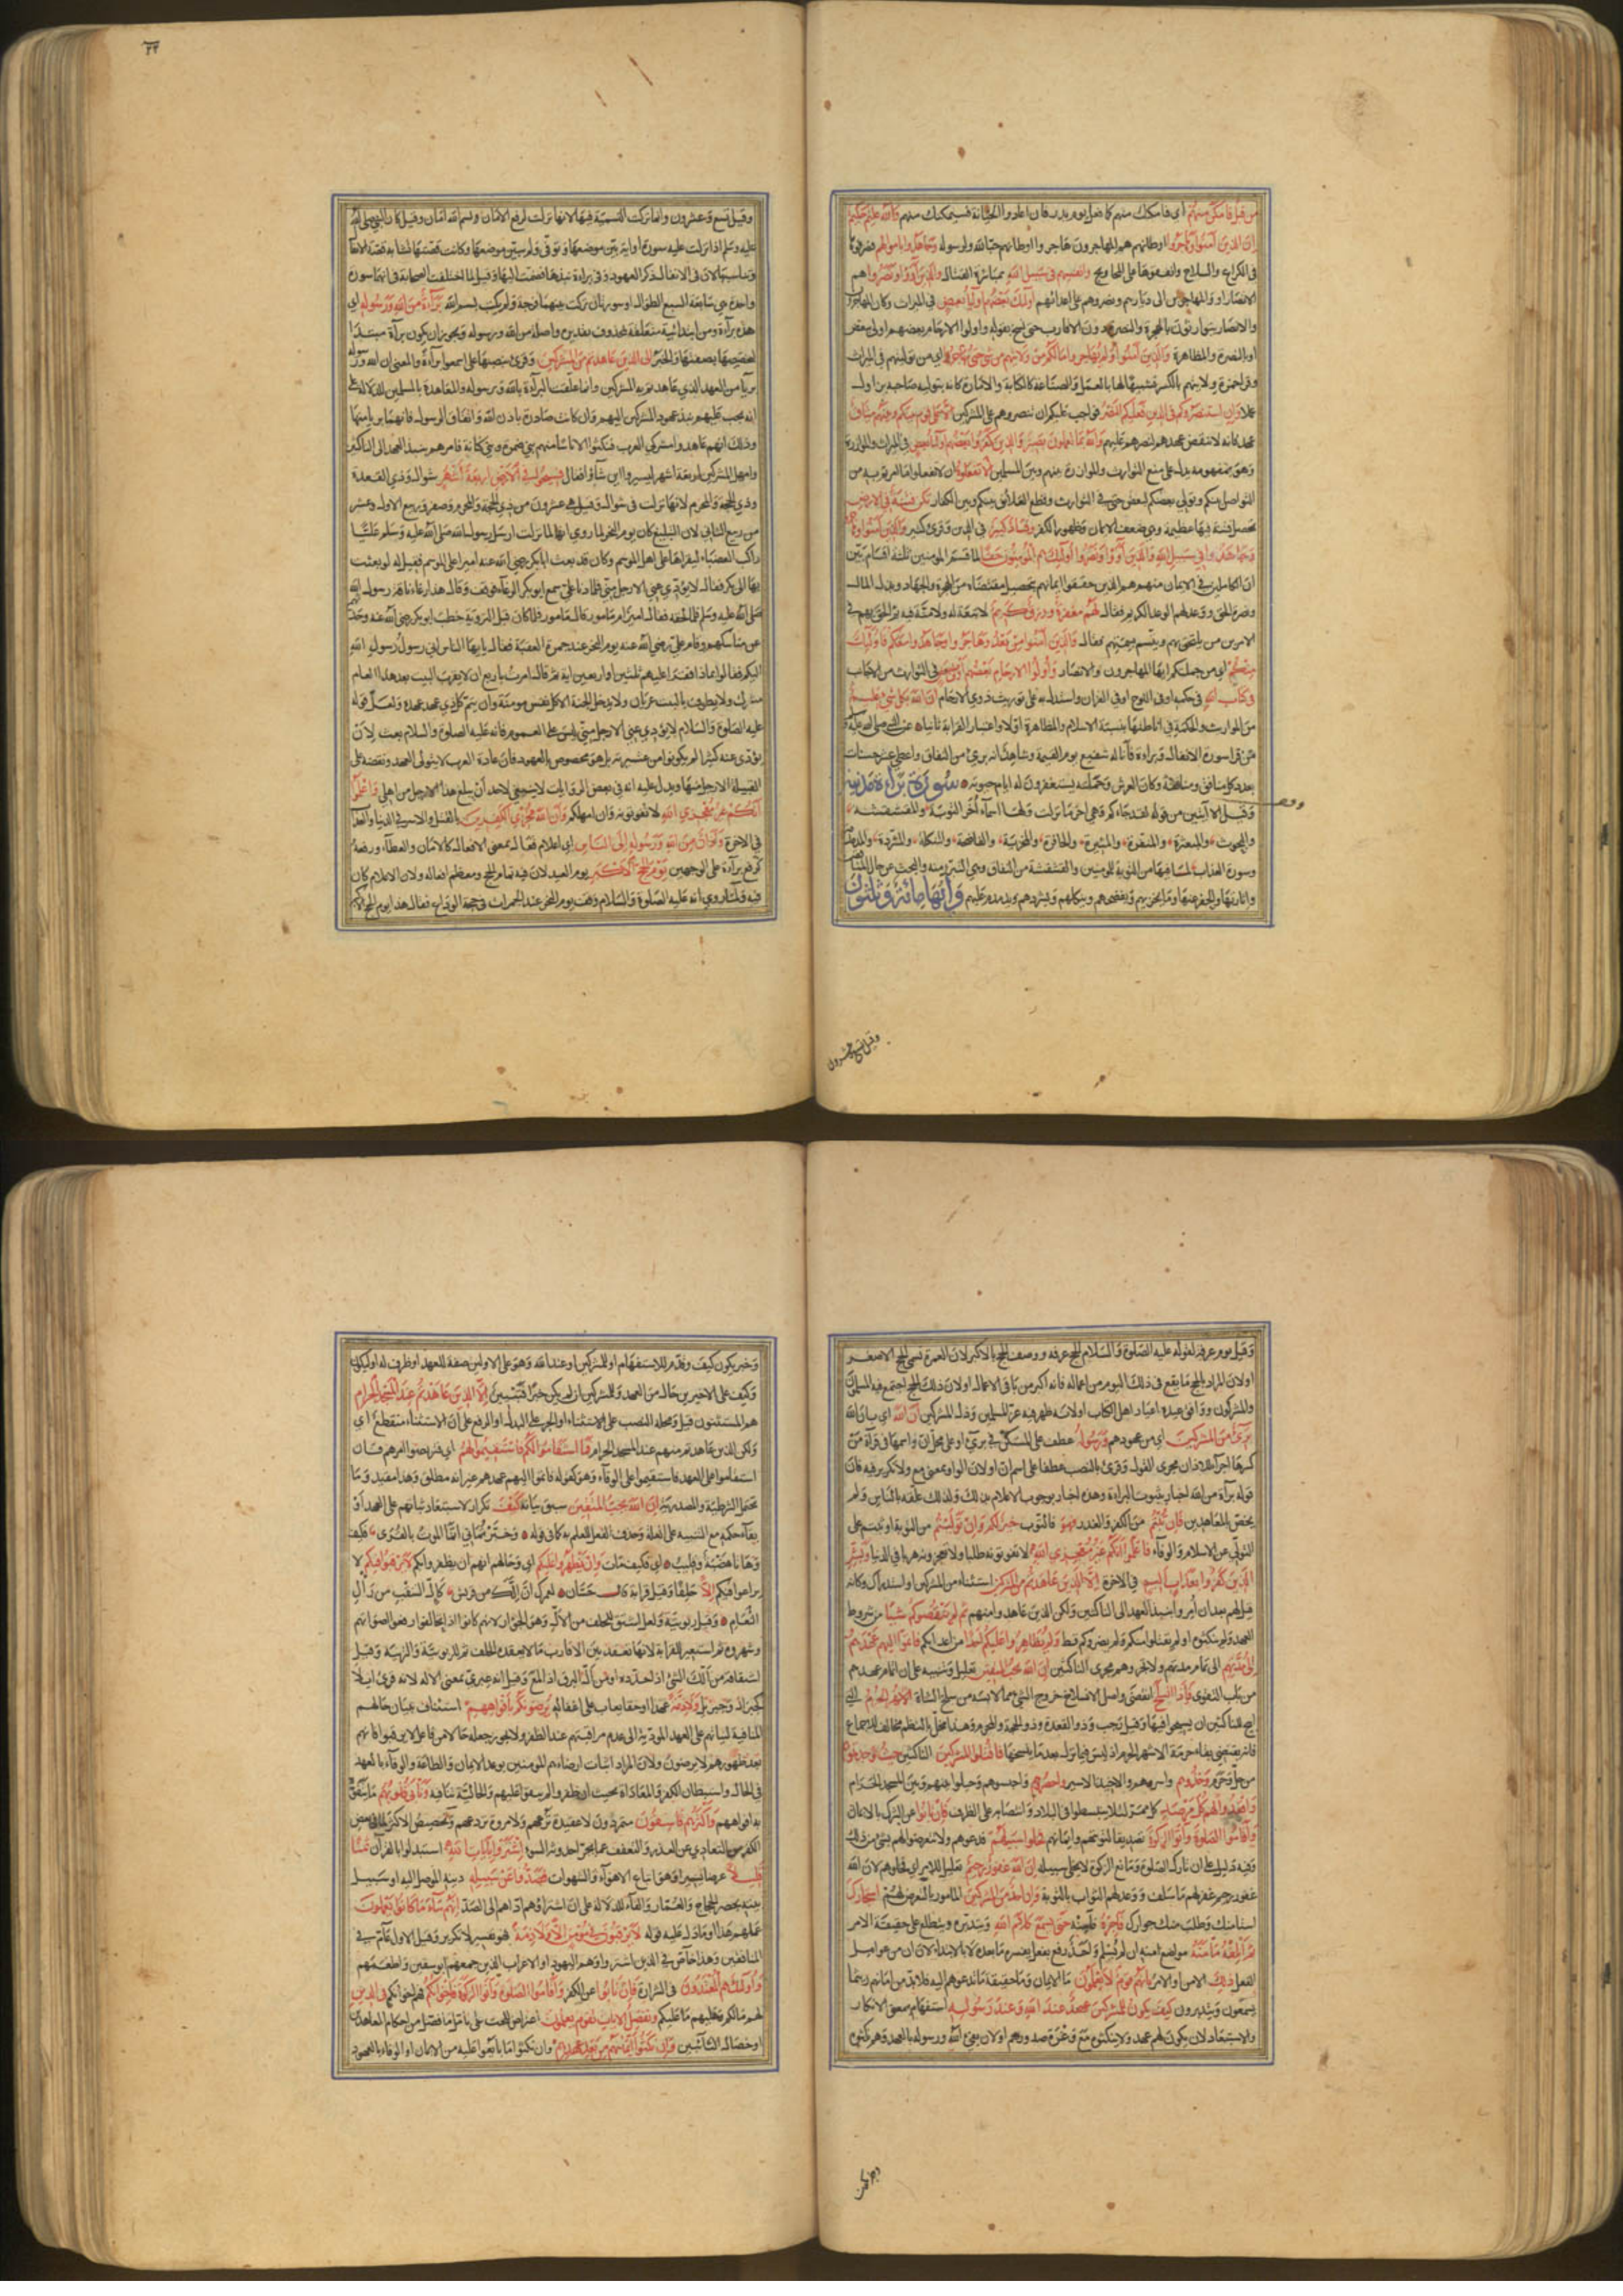 من قبل فامكن منهم اي فامكنك منهم كما فعل يوم بدر فان اعادوا الخيانة فسيمكنك منهم والله عليم حكيم
ان الذين آمنوا وهاجروا اوطانهم هم المهاجرون هاجروا اوطانهم حبا لله ولرسوله وجاهدوا باموالهم فصرفوها
في الكراع والسلاح وانفقوها على المحاويج وانفسهم في سبيل الله بمباشرة القتال والذين آووا ونصروا هم
الانصار آووا المهاجرين الى ديارهم ونصروهم على اعدائهم اولئك بعضهم اولياء بعض في الميراث وكان المهاجرون
والانصار يتوارثون بالهجرة والنصرة دون الاقارب حتى نسخ بقوله واولوا الارحام بعضهم اولى ببعض
او بالنصرة والمظاهرة والذين آمنوا ولم يهاجروا ما لكم من ولايتهم من شيء حتى يهاجروا اي من توليتهم في الميراث
وقرا حمزة ولايتهم بالكسر تشبيها لها بالعمل والصناعة كالكتابة والامارة كانه بتوليه صاحبه يزاول
عملا وان استنصروكم في الدين فعليكم النصر فواجب عليكم ان تنصروهم على المشركين الا على قوم بينكم وبينهم ميثاق
عهد فانه لا ينقض عهدهم لنصرهم عليهم والله بما تعملون بصير والذين كفروا بعضهم اولياء بعض في الميراث والموازرة
وهو بمفهومه يدل على منع التوارث والموازرة بينهم وبين المسلمين الا تفعلوه ان لا تفعلوا ما امرتم به من
التواصل بينكم وتولي بعضكم لبعض حتى في التوارث وقطع العلائق بينكم وبين الكفار تكن فتنة في الارض
تحصل فتنة فيها عظيمة وهي ضعف الايمان وظهور الكفر وفساد كبير في الدين وقرئ كثير والذين آمنوا وهاجروا
وجاهدوا في سبيل الله والذين آووا ونصروا اولئك هم المؤمنون حقا لما قسم المؤمنين ثلثة اقسام بين
ان الكاملين في الايمان منهم هم الذين حققوا ايمانهم بتحصيل مقتضاه من الهجرة والجهاد وبذل المال
ونصرة الحق ووعد لهم الوعد الكريم فقال لهم مغفرة ورزق كريم لا تبعة له ولا منة فيه ثم الحق بهم في
الامرين من يلتحق بهم ويتسم بسمتهم فقال والذين آمنوا من بعد وهاجروا وجاهدوا معكم فاولئك
منكم اي من جملتكم ايها المهاجرون والانصار واولوا الارحام بعضهم اولى ببعض في التوارث من الاجانب
في كتاب الله في حكمه او في اللوح او في القرآن واستدل به على توريث ذوي الارحام ان الله بكل شيء عليم
من المواريث والحكمة في اناطتها بنسبة الاسلام والمظاهرة اولا واعتبار القرابة ثانيا عن النبي صلى الله عليه
من قرا سورة الانفال وبراءة فانا له شفيع يوم القيمة وشاهد انه بريء من النفاق واعطي عشر حسنات
بعدد كل منافق ومنافقة وكان العرش وحملته يستغفرون له ايام حيوته سورة براءة مدنية
وقيل الا آيتين من قوله لقد جاءكم وهي آخر ما نزلت ولها اسماء أخر التوبة والمقشقشة
والبحوث والمبعثرة والمنقرة والمثيرة والحافرة والمخزية والفاضحة والمنكلة والمشردة والمدمدمة
وسورة العذاب لما فيها من التوبة للمؤمنين والقشقشة من النفاق وهي التبري منه والبحث عن حال المنافقين
واثارتها والحفر عنها وما يخزيهم ويفضحهم وينكلهم ويشردهم ويدمدم عليهم وآيها مائة وثلثون
وقيل تسع وعشرون
وقيل تسع وعشرون وانما تركت التسمية فيها لانها نزلت لرفع الامان وبسم الله امان وقيل كان النبي صلى الله
عليه وسلم اذا نزلت عليه سورة او آية بين موضعها وتوفي ولم يبين موضعها وكانت قصتها تشابه قصة الانفال
وتناسبها لان في الانفال ذكر العهود وفي براءة نبذها فضمت اليها وقيل لما اختلفت الصحابة في انهما سورة
واحدة هي سابعة السبع الطوال او سورتان تركت بينهما فرجة ولم يكتب بسم الله براءة من الله ورسوله اي
هذه براءة ومن ابتدائية متعلقة بمحذوف تقديره واصلة من الله ورسوله ويجوز ان يكون براءة مبتدا
لتخصيصها بصفتها والخبر الى الذين عاهدتم من المشركين وقرئ بنصبها على اسمعوا براءة والمعنى ان الله ورسوله
بريا من العهد الذي عاهدتم به المشركين وانما علقت البراءة بالله ورسوله والمعاهدة بالمسلمين للدلالة على
انه يجب عليهم نبذ عهود المشركين اليهم وان كانت صادرة باذن الله واتفاق الرسول فانهما بريا منها
وذلك انهم عاهدوا مشركي العرب فنكثوا الا ناسا منهم بني ضمرة وبني كنانة فامرهم بنبذ العهد الى الناكثين
وامهل المشركين اربعة اشهر ليسيروا اين شاؤا فقال فسيحوا في الارض اربعة اشهر شوال وذي القعدة
وذي الحجة والمحرم لانها نزلت في شوال وقيل هي عشرون من ذي الحجة والمحرم وصفر وربيع الاول وعشر
من ربيع الثاني لان التبليغ كان يوم النحر لما روي انها لما نزلت ارسل رسول الله صلى الله عليه وسلم عليا
راكب العضباء ليقراها على اهل الموسم وكان قد بعث ابا بكر رضي الله عنه اميرا على الموسم فقيل له لو بعثت
بها الى بكر فقال لا يؤدي عني الا رجل مني فلما دنا علي سمع ابو بكر الرغاء فوقف وقال هذا رغاء ناقة رسول الله
صلى الله عليه وسلم فلما لحقه فقال امير ام مامور قال مامور فلما كان قبل التروية خطب ابو بكر رضي الله عنه وحدثهم
عن مناسكهم وقام علي رضي الله عنه يوم النحر عند جمرة العقبة فقال يا ايها الناس اني رسول رسول الله
اليكم فقالوا بماذا فقرأ عليهم ثلثين او اربعين آية ثم قال امرت باربع ان لا يقرب البيت بعد هذا العام
مشرك ولا يطوف بالبيت عريان ولا يدخل الجنة الا كل نفس مومنة وان يتم كل ذي عهد عهده ولعل قوله
عليه الصلوة والسلام لا يؤدي عني الا رجل مني ليس على العموم فانه عليه الصلوة والسلام بعث لان
يؤدي عنه كثيرا لم يكونوا من عشيرته بل هو مخصوص بالعهود فان عادة العرب لا يتولى العهد ونقضه على
القبيلة الا رجل منها ويدل عليه انه في بعض الروايات لا ينبغي لاحد ان يبلغ هذا الا رجل من اهلي واعلموا
انكم غير معجزي الله لا تفوتونه وان امهلكم وان الله مخزي الكافرين بالقتل والاسر في الدنيا والعذاب
في الاخرة واذان من الله ورسوله الى الناس اي اعلام فعال بمعنى الافعال كالامان والعطاء ورفعه
كرفع براءة على الوجهين يوم الحج الاكبر يوم العيد لان فيه تمام الحج ومعظم افعاله ولان الاعلام كان
فيه ولما روي انه عليه الصلوة والسلام وقف يوم النحر عند الجمرات في حجة الوداع فقال هذا يوم الحج الاكبر
وقيل يوم عرفة لقوله عليه الصلوة والسلام الحج عرفه ووصف الحج بالاكبر لان العمرة تسمى الحج الاصغر
او لان المراد بالحج ما يقع في ذلك اليوم من اعماله فانه اكبر من باقي الاعمال او لان ذلك الحج اجتمع فيه المسلمون
والمشركون ووافق عيده اعياد اهل الكتاب او لانه ظهر فيه عز المسلمين وذل المشركين ان الله اي بان الله
بريء من المشركين اي من عهودهم ورسوله عطف على المستكن في بريء او على محل ان واسمها في قراءة من
كسرها اجراء للاذان مجرى القول وقرئ بالنصب عطفا على اسم ان او لان الواو بمعنى مع ولا تكرير فيه فان
قوله براءة من الله اخبار بثبوت البراءة وهذه اخبار بوجوب الاعلام بذلك ولذلك علقه بالناس ولم
يخصص بالمعاهدين فان تبتم من الكفر والغدر فهو فالتوب خير لكم وان توليتم من التوبة او ثبتم على
التولي عن الاسلام والوفاء فاعلموا انكم غير معجزي الله لا تفوتونه طلبا ولا تعجزونه هربا في الدنيا وبشر
الذين كفروا بعذاب اليم في الاخرة الا الذين عاهدتم من المشركين استثناء من المشركين او استدراك وكانه
قيل لهم بعد ان امروا بنبذ العهد الى الناكثين ولكن الذين عاهدوا منهم ثم لم ينقصوكم شيئا من شروط
العهد ولم ينكثوه او لم يقتلوا منكم ولم يضروكم قط ولم يظاهروا عليكم احدا من اعدائكم فاتموا اليهم عهدهم
الى مدتهم الى تمام مدتهم ولا تجروهم مجرى الناكثين ان الله يحب المتقين تعليل وتنبيه على ان اتمام عهدهم
من باب التقوى فاذا انسلخ انقضى واصل الانسلاخ خروج الشيء مما لابسه من سلخ الشاة الاشهر الحرم التي
ابيح للناكثين ان يسيحوا فيها وقيل رجب وذو القعدة وذو الحجة والمحرم وهذا مخل بالنظم مخالف للاجماع
فانه يقتضي بقاء حرمة الاشهر الحرم اذ ليس فيما نزل بعد ما ينسخها فاقتلوا المشركين الناكثين حيث وجدتموهم
من حل وحرم وخذوهم واسروهم والاخيذ الاسير واحصروهم واحبسوهم وحيلوا بينهم وبين المسجد الحرام
واقعدوا لهم كل مرصد كل ممر لئلا ينبسطوا في البلاد وانتصابه على الظرف فان تابوا عن الشرك بالايمان
واقاموا الصلوة وآتوا الزكوة تصديقا لتوبتهم وايمانهم فخلوا سبيلهم فدعوهم ولا تتعرضوا لهم بشيء من ذلك
وفيه دليل على ان تارك الصلوة ومانع الزكوة لا يخلى سبيله ان الله غفور رحيم تعليل للامر اي فخلوهم لان الله
غفور رحيم غفر لهم ما سلف ووعد لهم الثواب بالتوبة وان احد من المشركين المامور بالتعرض لهم استجارك
استامنك وطلب منك جوارك فاجره فآمنه حتى يسمع كلام الله ويتدبره ويطلع على حقيقة الامر
ثم ابلغه مامنه موضع امنه ان لم يسلم واحد رفع بفعل يفسره ما بعده لا بالابتداء لان ان من عوامل
الفعل ذلك الامن او الامر بانهم قوم لا يعلمون ما الايمان وما حقيقة ما تدعوهم اليه فلابد من امانهم ريثما
يسمعون ويتدبرون كيف يكون للمشركين عهد عند الله وعند رسوله استفهام بمعنى الانكار
والاستبعاد لان يكون لهم عهد ولا ينكثوه مع وغرة صدورهم او لان يفي الله ورسوله بالعهد وهم نكثوه
وخبر يكون
وخبر يكون كيف وقدم للاستفهام او للمشركين او عند الله وهو على الاولين صفة للعهد او ظرف له او ليكون
وكيف على الاخيرين حال من العهد وللمشركين ان لم يكن خبرا فتبيين الا الذين عاهدتم عند المسجد الحرام
هم المستثنون قبل ومحله النصب على الاستثناء او الجر على البدل او الرفع على ان الاستثناء منقطع اي
ولكن الذين عاهدتم منهم عند المسجد الحرام فما استقاموا لكم فاستقيموا لهم اي فتربصوا امرهم فان
استقاموا على العهد فاستقيموا على الوفاء وهو كقوله فاتموا اليهم عهدهم غير انه مطلق وهذا مقيد وما
تحتمل الشرطية والمصدرية ان الله يحب المتقين سبق بيانه كيف تكرار لاستبعاد ثباتهم على العهد او
بقاء حكمه مع التنبيه على العلة وحذف الفعل للعلم به كما في قوله وخبرتماني انما الموت بالقرى فكيف
وهاتا هضبة وقليب اي فكيف مات وان يظهروا عليكم اي وحالهم انهم ان يظفروا بكم لا يرقبوا فيكم لا
يراعوا فيكم الا حلفا وقيل قرابة قال حسان لعمرك ان الك من قريش كال السقب من رال
النعام وقيل ربوبية ولعل اشتق للحلف من الال وهو الجؤار لانهم كانوا اذا تحالفوا رفعوا اصواتهم
وشهروه ثم استعير للقرابة لانها تعقد بين الاقارب ما لا يعقده الحلف ثم للربوبية والتربية وقيل
اشتقاقه من الل الشيء اذا حدده او من ال البرق اذا لمع وقيل انه عبري بمعنى الاله لانه قرئ ايلا
كجبرائل وجبرئيل ولا ذمة عهدا او حقا يعاب على اغفاله يرضونكم بافواههم استئناف لبيان حالهم
المنافية لثباتهم على العهد المؤدية الى عدم مراقبتهم عند الظفر ولا يجوز جعله حالا من فاعل لا يرقبوا فانهم
بعد ظهورهم لا يرضون ولان المراد اثبات ارضاءهم المؤمنين بوعد الايمان والطاعة والوفاء بالعهد
في الحال واستبطان الكفر والمعاداة بحيث ان ظفروا لم يبقوا عليهم والحالية تنافيه وتابى قلوبهم ما يتفوه
به افواههم واكثرهم فاسقون متمردون لا عقيدة تزعهم ولا مروة تردعهم وتخصيص الاكثر لما في بعض
الكفرة من التفادي عن الغدر والتعفف عما يجر احدوثة السوء اشتروا بآيات الله استبدلوا بالقرآن ثمنا
قليلا عرضا يسيرا وهو اتباع الاهواء والشهوات فصدوا عن سبيله دينه الموصل اليه او سبيل
بيته بحصر الحجاج والعمار والفاء للدلالة على ان اشتراءهم اداهم الى الصد انهم ساء ما كانوا يعملون
عملهم هذا او ما دل عليه قوله لا يرقبون في مؤمن الا ولا ذمة فهو تفسير لا تكرير وقيل الاول عام في
المنافقين وهذا خاص في الذين اشتروا وهم اليهود او الاعراب الذين جمعهم ابو سفين واطعمهم
واولئك هم المعتدون في الشرارة فان تابوا عن الكفر واقاموا الصلوة وآتوا الزكوة فاخوانكم فهم اخوانكم في الدين
لهم ما لكم وعليهم ما عليكم ونفصل الايات لقوم يعلمون اعتراض للحث على تامل ما فصل من احكام المعاهدين
او خصال التائبين وان نكثوا ايمانهم من بعد عهدهم وان نكثوا ما بايعوا عليه من الايمان او الوفاء بالعهود